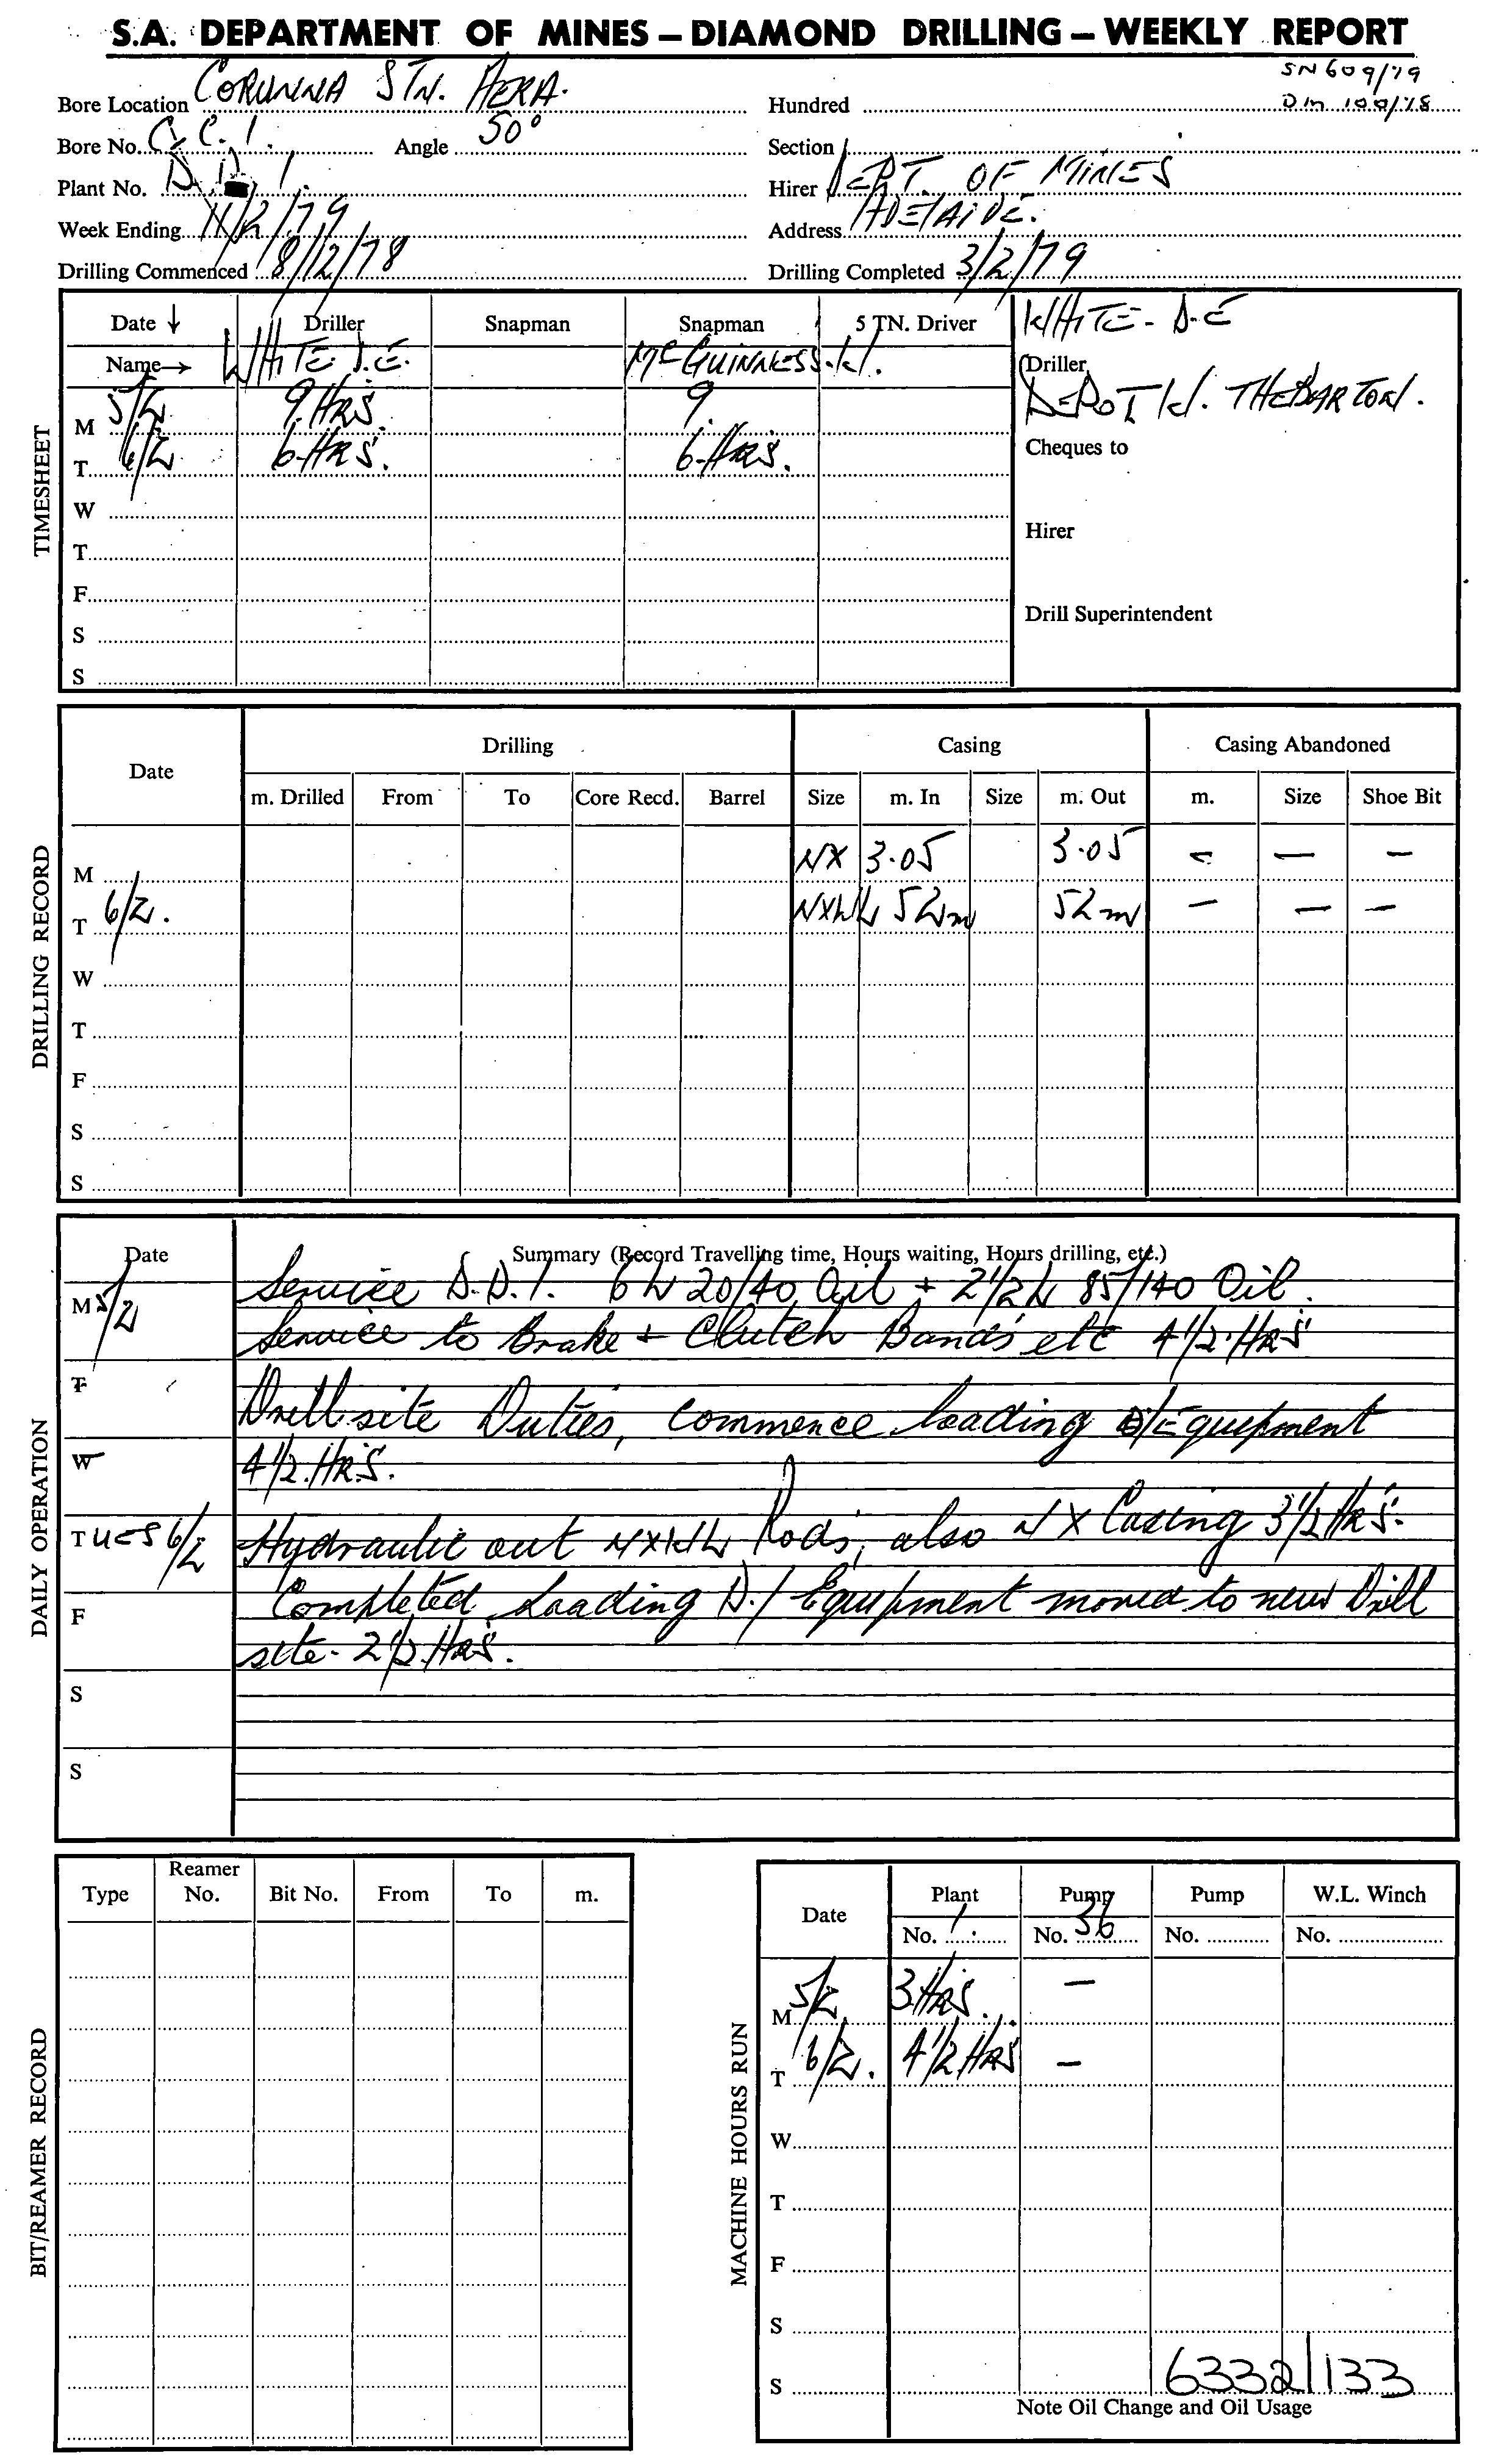 S.A. DEPARTMENT OF MINES – DIAMOND DRILLING – WEEKLY REPORT
SN 609/79
Bore Location CORUNNA STN. AERA. Hundred DM 100/78
Bore No. C.C.1. Angle 50° Section
Plant No. D.D.1. Hirer DEPT. OF MINES
Week Ending 11/2/79 Address ADELAIDE.
Drilling Commenced 8/12/78 Drilling Completed 3/2/79
TIMESHEET
Date ↓ Driller Snapman Snapman 5 TN. Driver WHITE - D.E
Name→ WHITE. D.E. McGUINNESS. W. Driller
M 5/2 9 HRS 9. DEPOT W. THEBARTON.
T 6/2 6 HRS. 6 HRS. Cheques to
W
T Hirer
F
S Drill Superintendent
S
DRILLING RECORD
Date Drilling Casing Casing Abandoned
m. Drilled From To Core Recd. Barrel Size m. In Size m. Out m. Size Shoe Bit
M NX 3.05 3.05 – – –
T 6/2. NXWL 52m 52m – – –
W
T
F
S
S
DAILY OPERATION
Date Summary (Record Travelling time, Hours waiting, Hours drilling, etc.)
M 5/2 Service D.D.1. 6 L 20/40 Oil + 2 1/2 L 85/140 Oil.
Service to Brake + Clutch Bands etc 4 1/2 HRS
T Drill site Duties, commence loading D/Equipment
W 4 1/2 HRS.
TUES 6/2 Hydraulic out NXWL Rods, also NX Casing 3 1/2 HRS.
F Completed Loading D./Equipment moved to new Drill
site - 2 1/2 HRS.
S
S
BIT/REAMER RECORD
Type Reamer No. Bit No. From To m.
MACHINE HOURS RUN
Date Plant Pump Pump W.L. Winch
No. 1. No. 36 No. No.
M 5/2 3 HRS. –
T 6/2. 4 1/2 HRS –
W
T
F
S
S 6332/133
Note Oil Change and Oil Usage